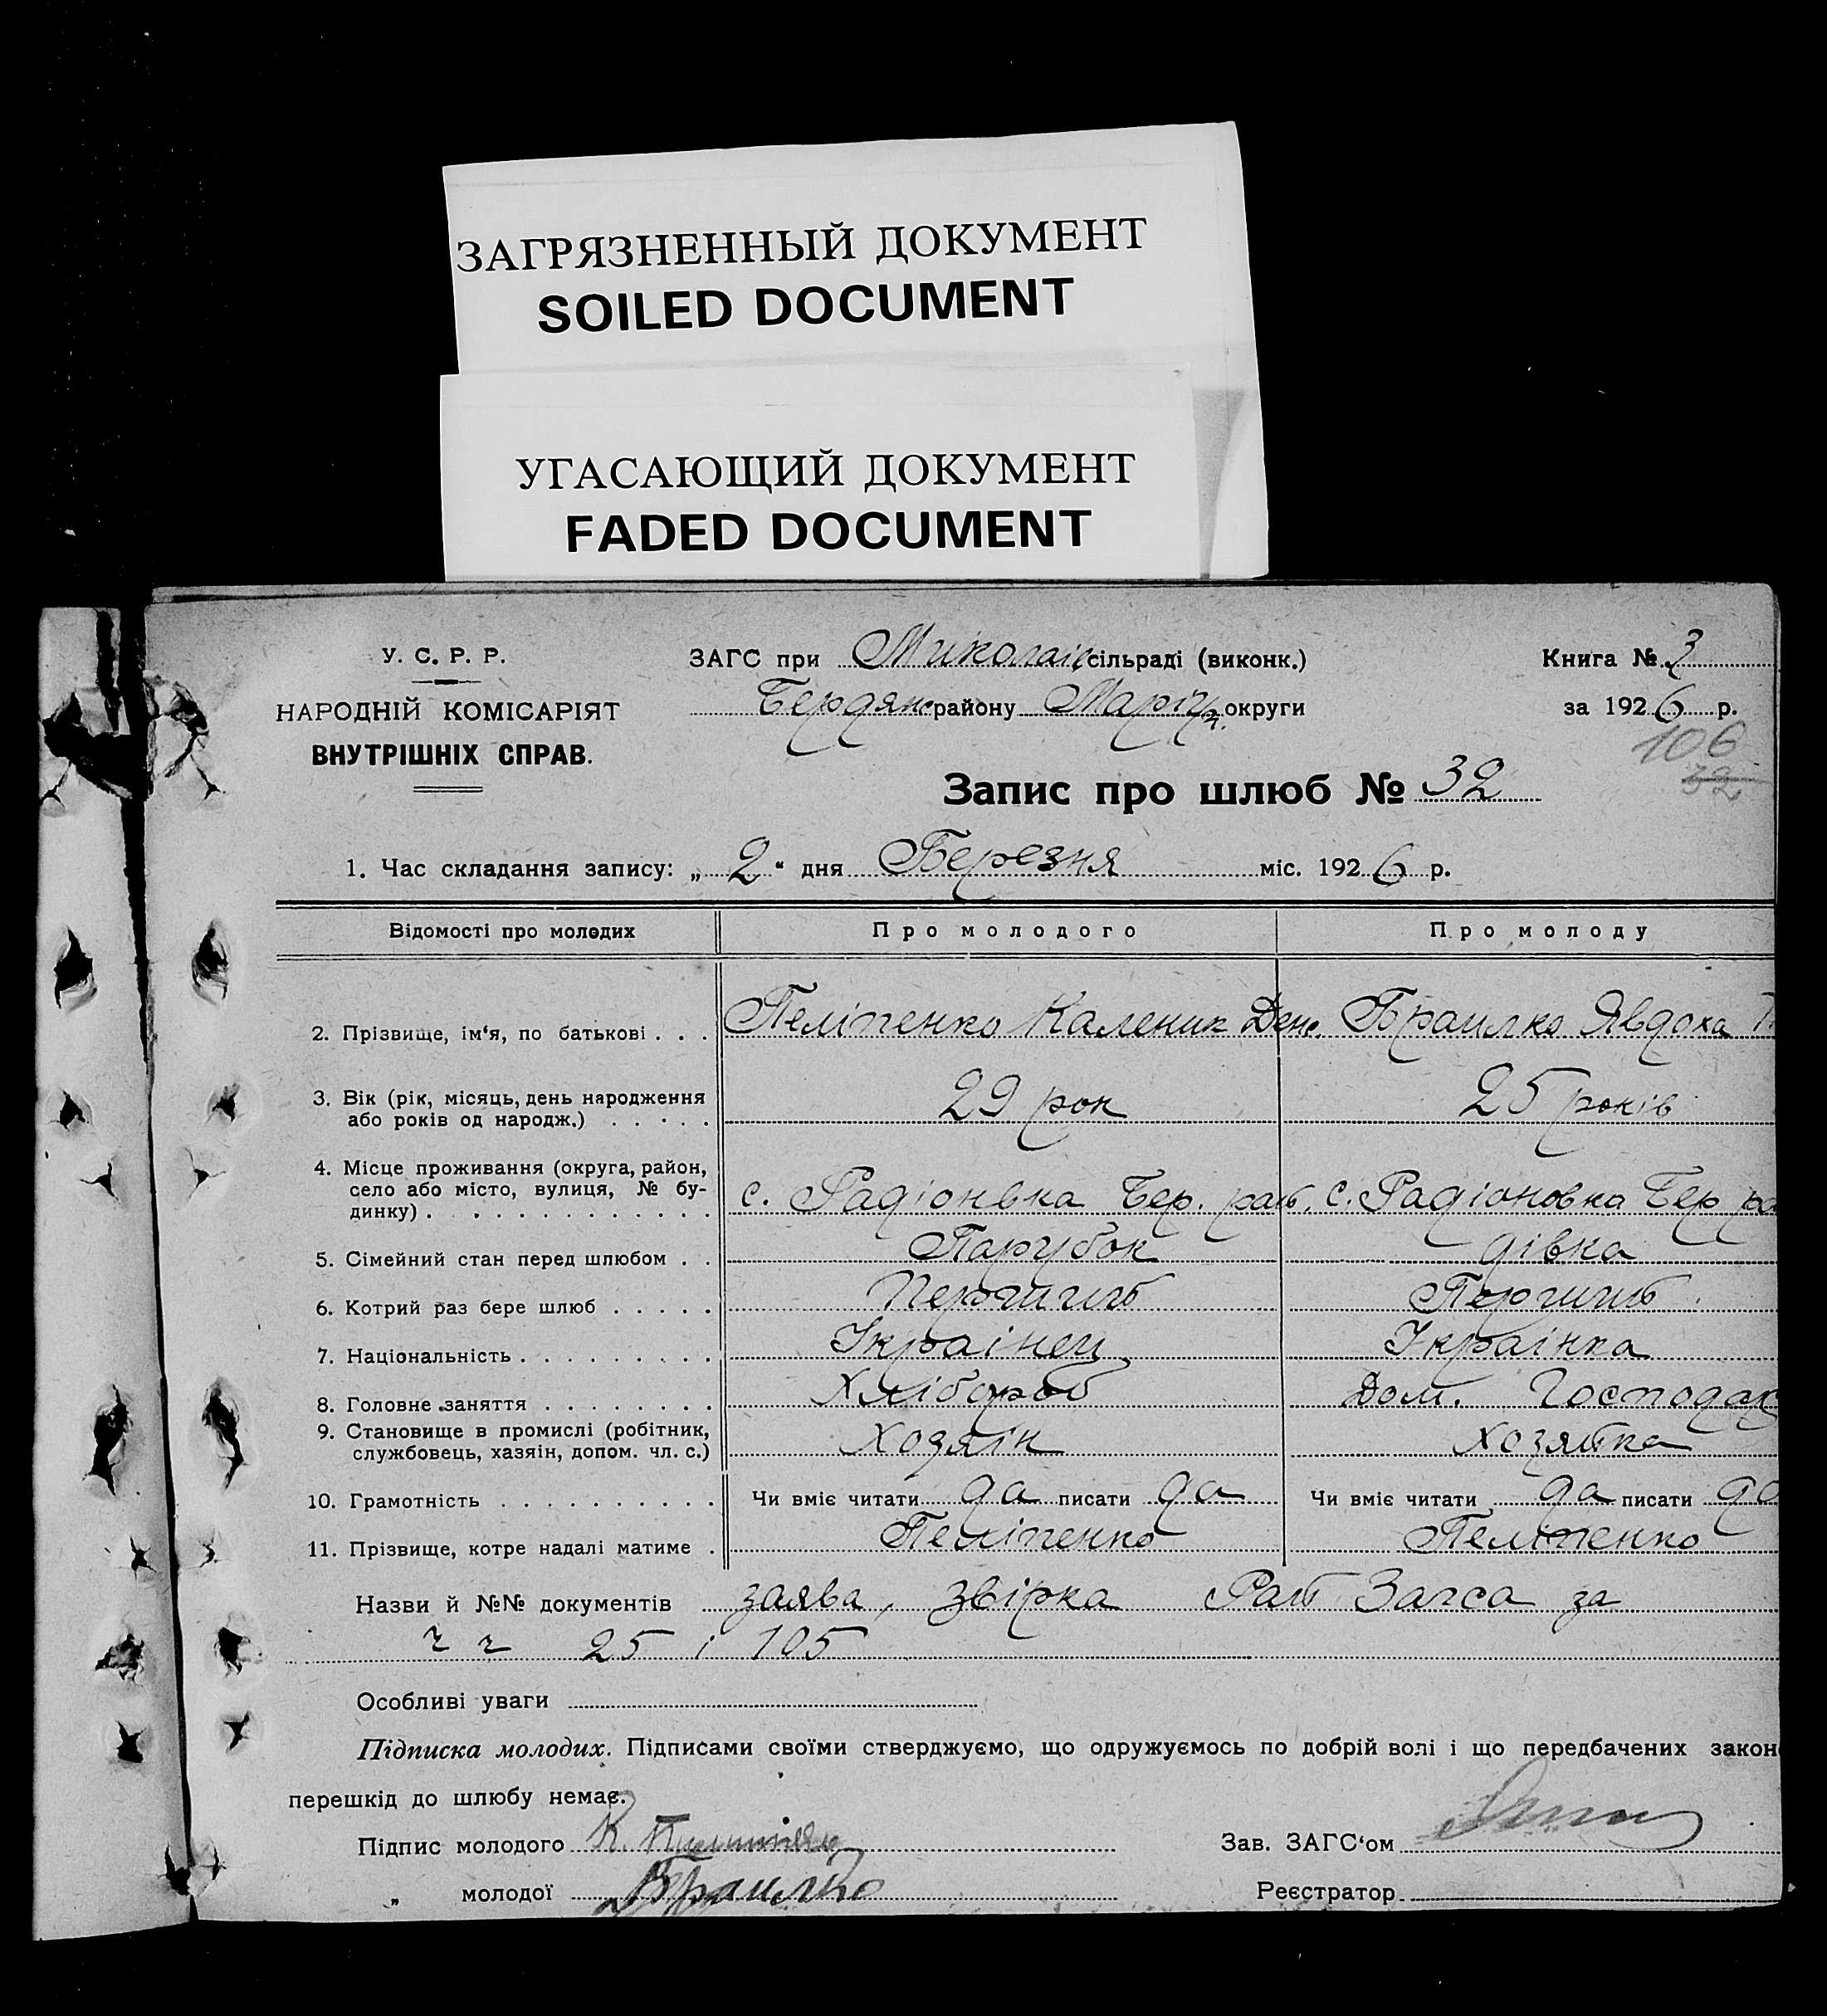 ЗАГРЯЗНЕННЫЙ ДОКУМЕНТ
SOILED DOCUMENT
УГАСАЮЩИЙ ДОКУМЕНТ
FADED DOCUMENT
У. С. Р. Р.
НАРОДНІЙ КОМІСАРІЯТ
ВНУТРІШНІХ СПРАВ.
ЗАГС при Миколаїв сільраді (виконк.)
Бердянс району Маріуп. округи
Книга № 3
за 1926 р.
106
32
Запис про шлюб № 32
1. Час складання запису: „ 2 " дня Березня міс. 1926 р.
Відомості про молодих Про молодого Про молоду
2. Прізвище, ім'я, по батькові . . . Пеліпенко Каленик Ден. Браилко Явдоха
3. Вік (рік, місяць, день народження
або років од народж.) . . . . . 29 рок 25 років
4. Місце проживання (округа, район,
село або місто, вулиця, № бу-
динку) . . . . . . . . . . . . . с. Радіонвка Бер. рай. с. Радіоновка Бер ра
5. Сімейний стан перед шлюбом . . Парубок дівка
6. Котрий раз бере шлюб . . . . . Першить Першить
7. Національність . . . . . . . . . Українец Українка
8. Головне заняття . . . . . . . . Хлібороб Дом. Господар
9. Становище в промислі (робітник,
службовець, хазяін, допом. чл. с.) Хозяін Хозяйка
10. Грамотність . . . . . . . . . . Чи вміє читати да писати да Чи вміє читати да писати да
11. Прізвище, котре надалі матиме . Пеліпенко Пеліпенко
Назви й №№ документів заява, звірка Рай Загса за
ч ч 25 і 105
Особливі уваги
Підписка молодих. Підписами своїми стверджуємо, що одружуємось по добрій волі і що передбачених закон
перешкід до шлюбу немає.
Підпис молодого К. Зав. ЗАГС'ом
„ молодої Браилко Реєстратор